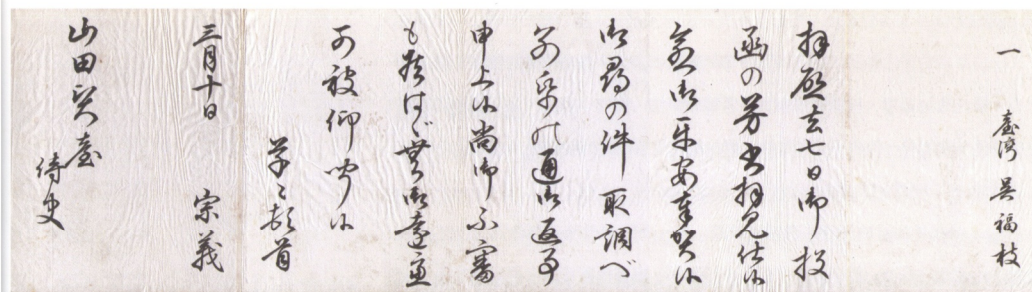 一 臺湾 吴福枝
拝啓去七日御投
函の芳書拝見仕候
愈御平安奉賀候
御尋の件取調べ
別紙の通御返事
申上候尚御不審
も候はゞ無御遠慮
可被仰聞候
草々頓首
三月十日 宗義
山田賢台
侍史